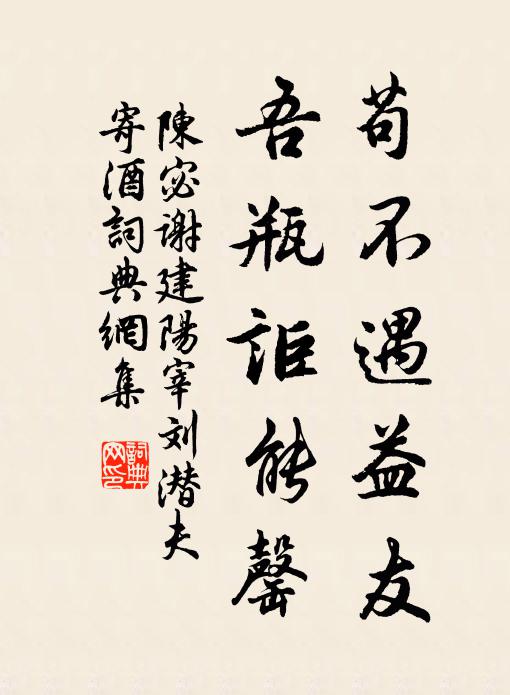 苟不遇益友
吾瓶詎能罄
陳宓谢建陽宰刘潜夫
寄酒詞典網集
詞典
网印